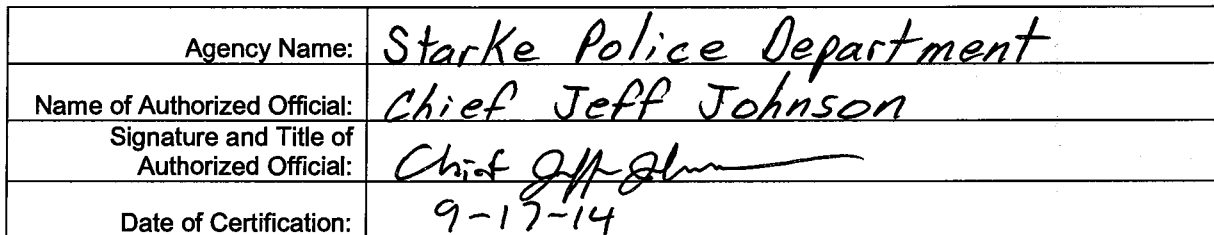 Agency Name: Starke Police Department
Name of Authorized Official: Chief Jeff Johnson
Signature and Title of
Authorized Official: Chief Jeff Johnson
Date of Certification: 9-17-14